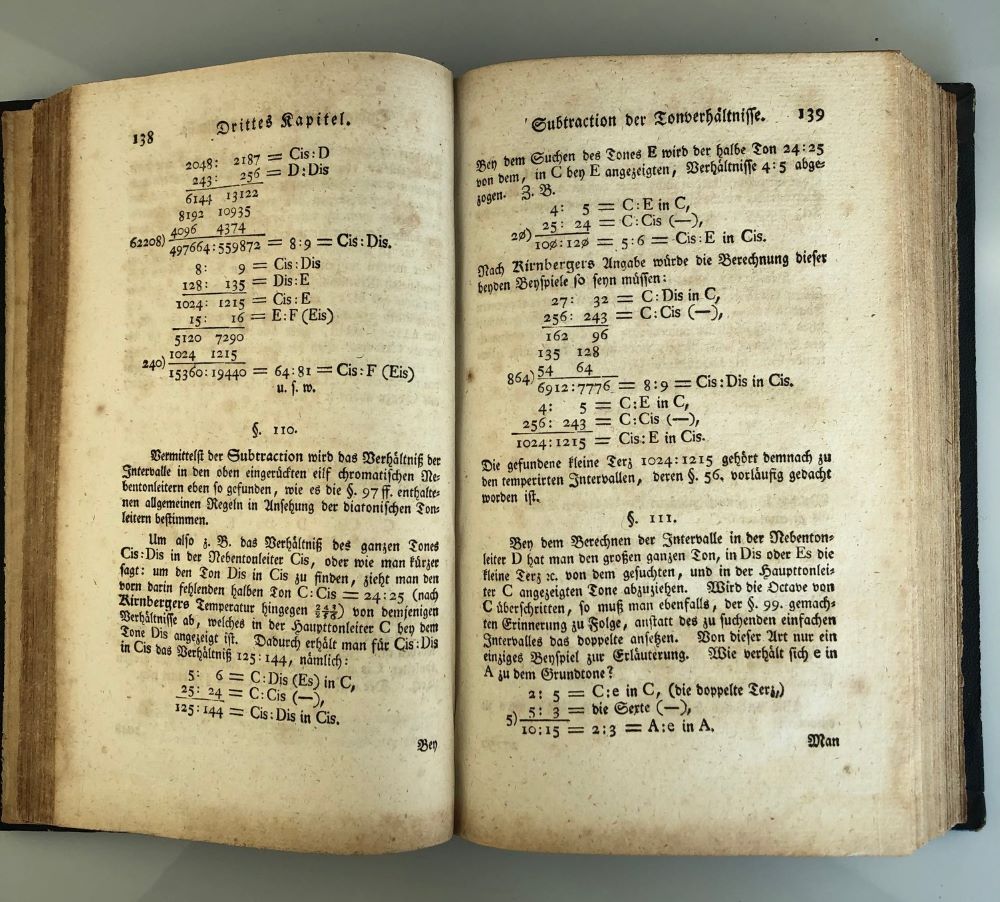 138
Drittes Kapitel.
2048: 2187 = Cis:D
243: 256 = D:Dis
6144 13122
8192 10935
4096 4374
62208) 497664:559872 = 8:9 = Cis:Dis.
8: 9 = Cis:Dis
128: 135 = Dis:E
1024: 1215 = Cis:E
15: 16 = E:F (Eis)
5120 7290
1024 1215
240) 15360:19440 = 64:81 = Cis:F (Eis)
u. s. w.
§. 110.
Vermittelst der Subtraction wird das Verhältniß der
Intervalle in den oben eingerückten eilf chromatischen Ne-
bentonleitern eben so gefunden, wie es die §. 97 ff. enthalte-
nen allgemeinen Regeln in Ansehung der diatonischen Ton-
leitern bestimmen.
Um also z. B. das Verhältniß des ganzen Tones
Cis:Dis in der Nebentonleiter Cis, oder wie man kürzer
sagt: um den Ton Dis in Cis zu finden, zieht man den
vorn darin fehlenden halben Ton C:Cis = 24:25 (nach
Kirnbergers Temperatur hingegen 243/256) von demjenigen
Verhältnisse ab, welches in der Haupttonleiter C bey dem
Tone Dis angezeigt ist. Dadurch erhält man für Cis:Dis
in Cis das Verhältniß 125:144, nämlich:
5: 6 = C:Dis (Es) in C,
25: 24 = C:Cis (—),
125:144 = Cis:Dis in Cis.
Bey
Subtraction der Tonverhältnisse. 139
Bey dem Suchen des Tones E wird der halbe Ton 24:25
von dem, in C bey E angezeigten, Verhältnisse 4:5 abge-
zogen. Z. B.
4: 5 = C:E in C,
25: 24 = C:Cis (—),
20) 100:120 = 5:6 = Cis:E in Cis.
Nach Kirnbergers Angabe würde die Berechnung dieser
beyden Beyspiele so seyn müssen:
27: 32 = C:Dis in C,
256: 243 = C:Cis (—),
162 96
135 128
54 64
864) 6912:7776 = 8:9 = Cis:Dis in Cis.
4: 5 = C:E in C,
256: 243 = C:Cis (—),
1024:1215 = Cis:E in Cis.
Die gefundene kleine Terz 1024:1215 gehört demnach zu
den temperirten Intervallen, deren §. 56. vorläufig gedacht
worden ist.
§. 111.
Bey dem Berechnen der Intervalle in der Nebenton-
leiter D hat man den großen ganzen Ton, in Dis oder Es die
kleine Terz ꝛc. von dem gesuchten, und in der Haupttonlei-
ter C angezeigten Tone abzuziehen. Wird die Octave von
C überschritten, so muß man ebenfalls, der §. 99. gemach-
ten Erinnerung zu Folge, anstatt des zu suchenden einfachen
Intervalles das doppelte ansetzen. Von dieser Art nur ein
einziges Beyspiel zur Erläuterung. Wie verhält sich e in
A zu dem Grundtone?
2: 5 = C:e in C, (die doppelte Terz,)
5: 3 = die Sexte (—),
5) 10:15 = 2:3 = A:e in A.
Man